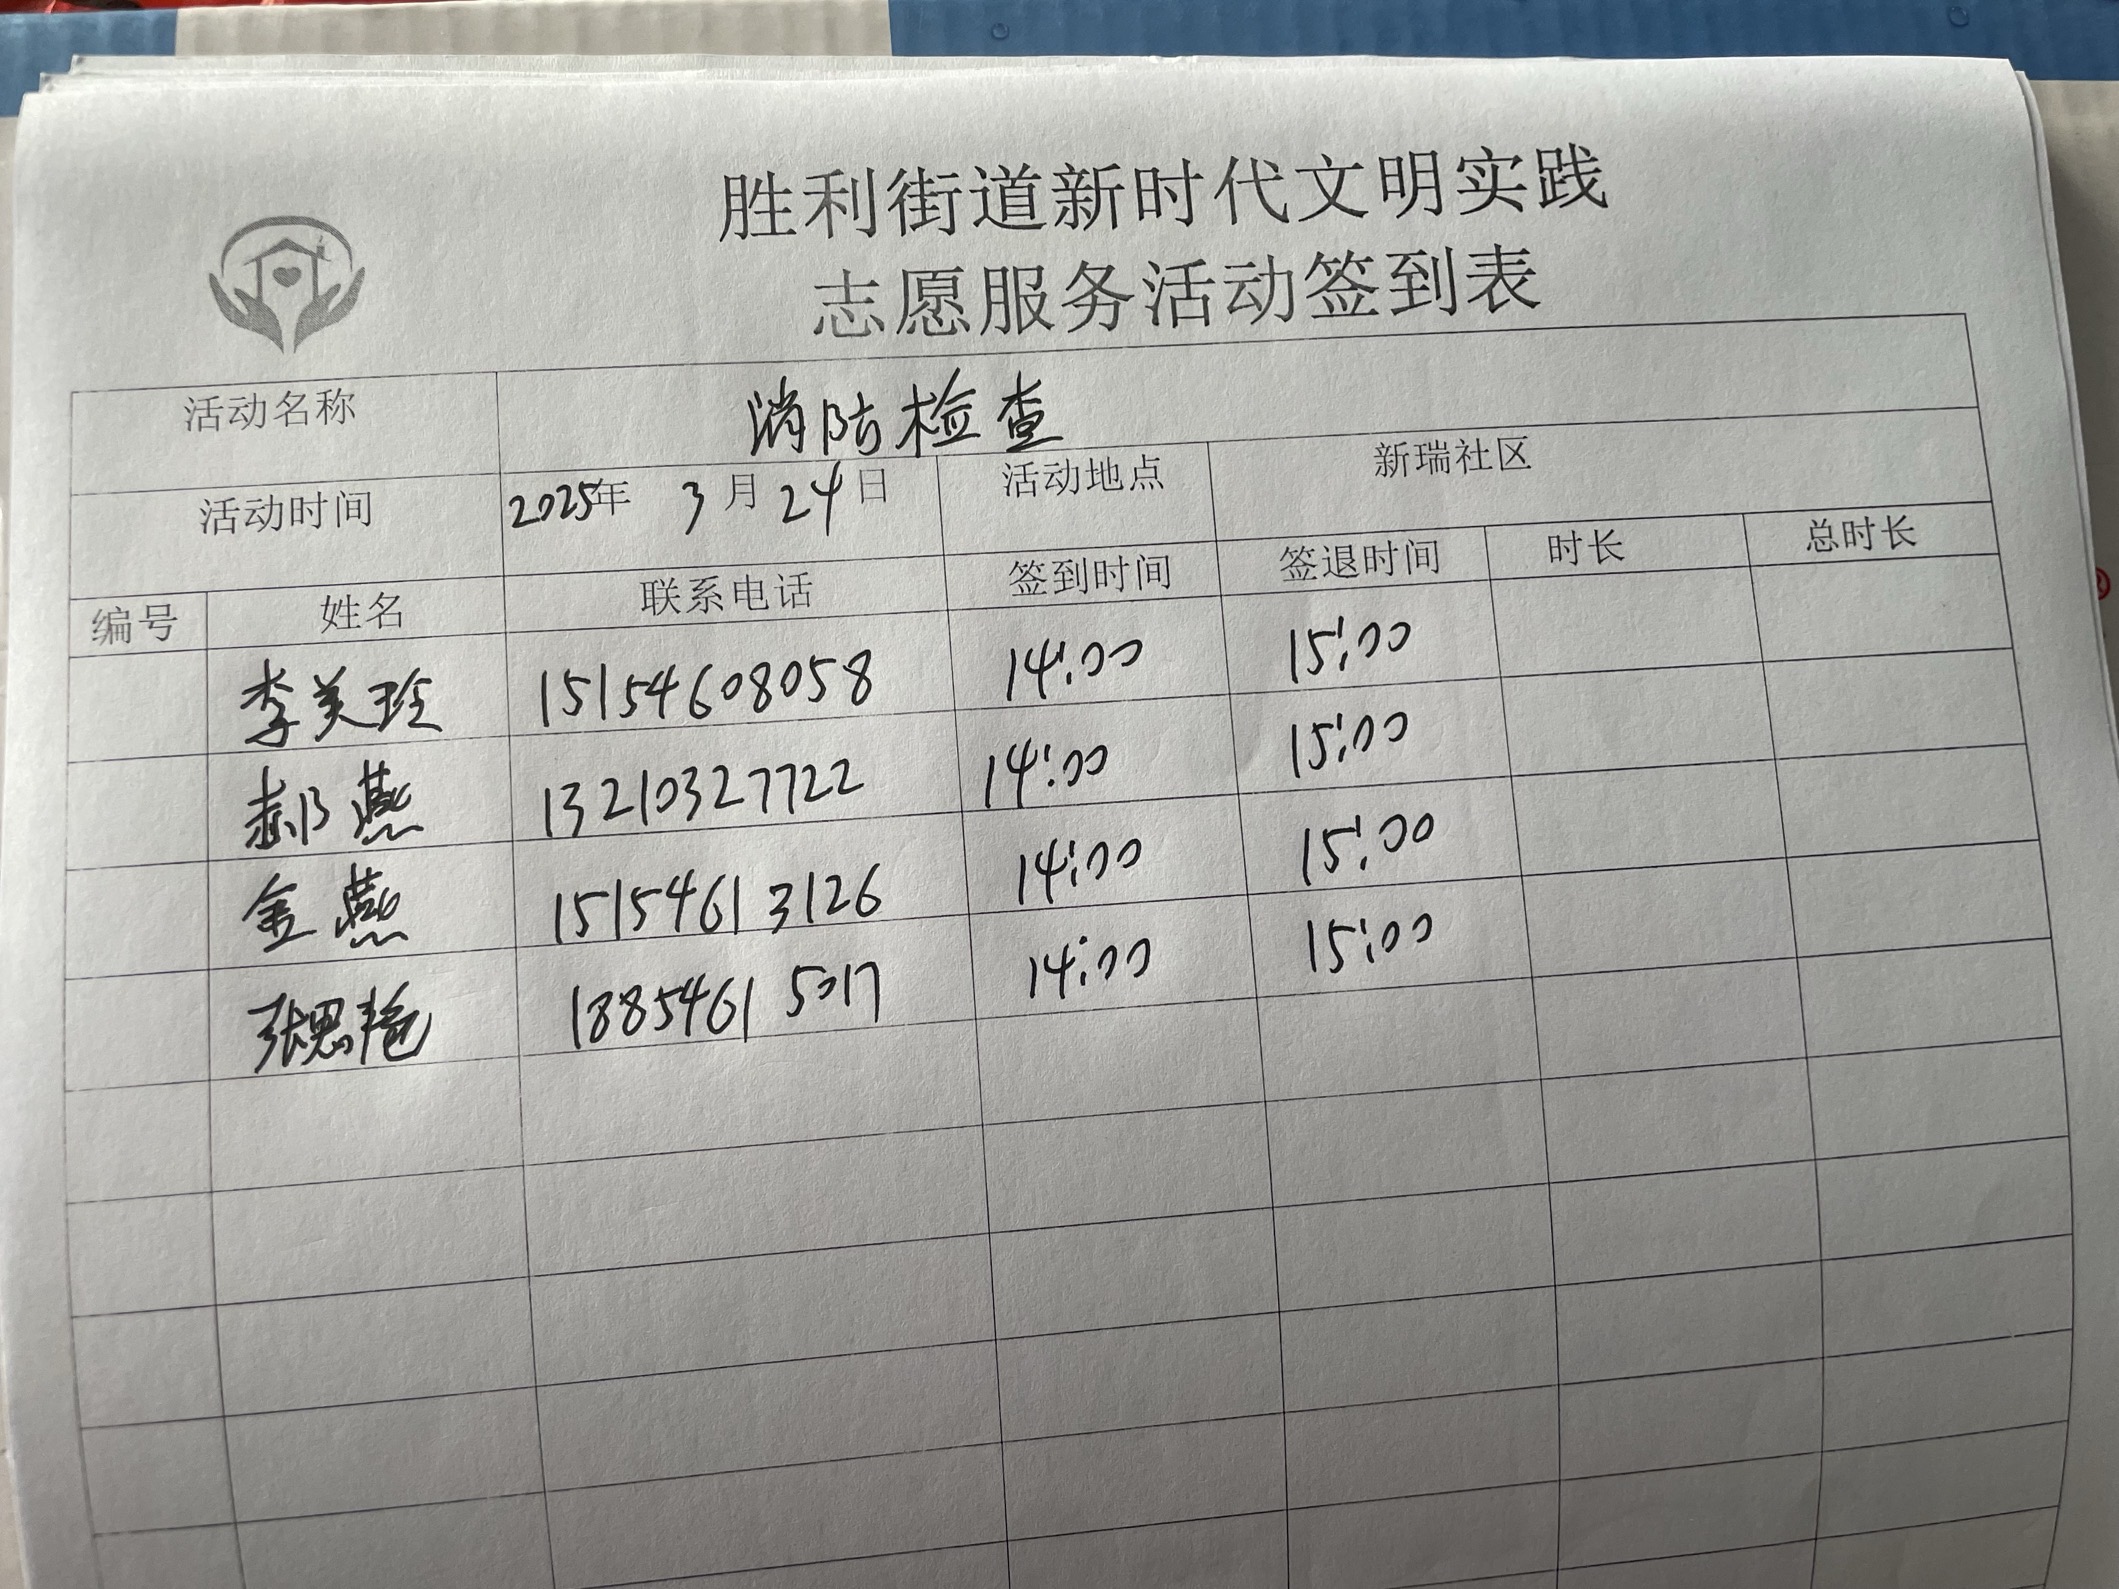 胜利街道新时代文明实践
志愿服务活动签到表
活动名称 消防检查
活动时间 2025年 3月24日 活动地点 新瑞社区
编号 姓名 联系电话 签到时间 签退时间 时长 总时长
李美玲 15154608058 14:00 15:00
郝燕 13210327722 14:00 15:00
金燕 15154613126 14:00 15:00
张思艳 18854615017 14:00 15:00